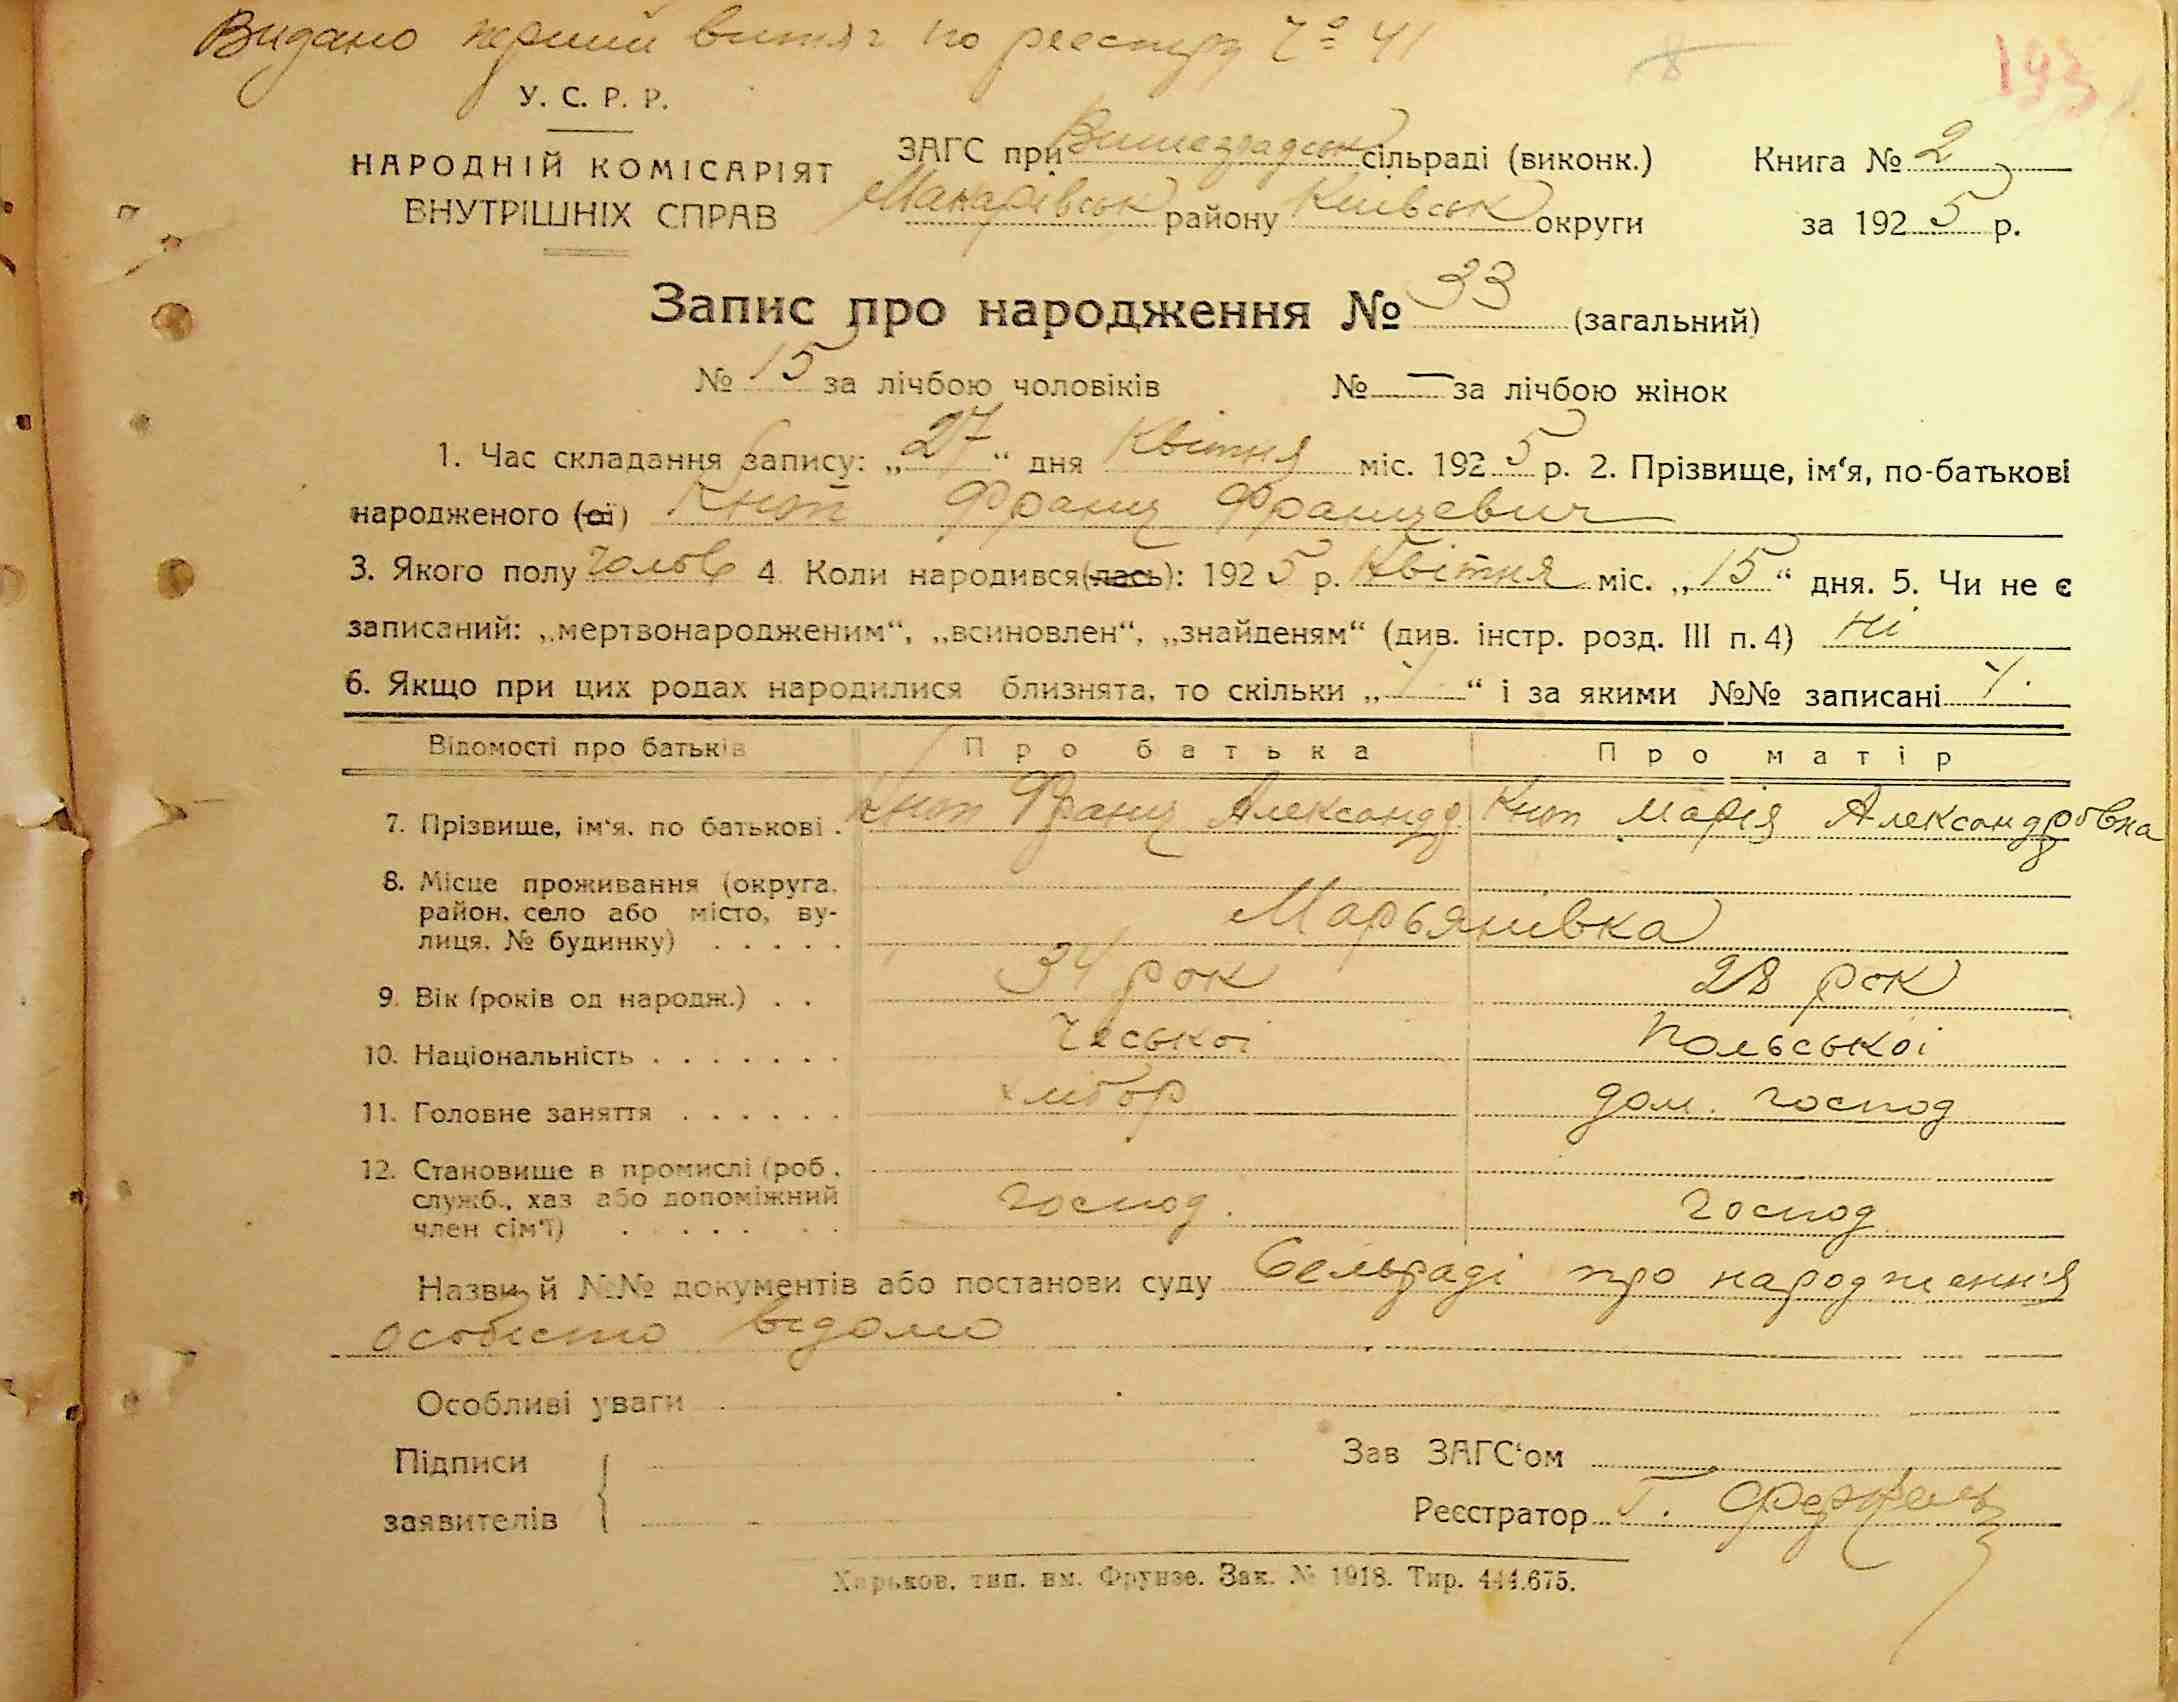 Видано перший витяг по реєстру Ч° 41
193
У. С. Р. Р.
НАРОДНІЙ КОМІСАРІЯТ
ВНУТРІШНІХ СПРАВ
ЗАГС при Вишеградськ сільраді (виконк.)
Макарівськ району Київськ округи
Книга № 2
за 1925 р.
Запис про народження № 33 (загальний)
№ 15 за лічбою чоловіків № — за лічбою жінок
1. Час складання запису: „27“ дня Квітня міс. 1925 р. 2. Прізвище, ім‘я, по-батькові
народженого (ої) Кноп Франц Францевич
3. Якого полу чолов 4. Коли народився(лась): 1925 р. Квітня міс. „15“ дня. 5. Чи не є
записаний: „мертвонародженим“, „всиновлен“, „знайденям“ (див. інстр. розд. III п. 4) ні
6. Якщо при цих родах народилися близнята, то скільки „ “ і за якими №№ записані
Відомості про батьків Про батька Про матір
7. Прізвище, ім‘я, по батькові . Кноп Франц Александр Кноп Марія Александровна
8. Місце проживання (округа,
район, село або місто, ву-
лиця, № будинку) . . . . . Марьянівка
9. Вік (років од народж.) . . 34 рок 28 рок
10. Національність . . . . . . . Чеської Польської
11. Головне заняття . . . . . . хлібор дом. господ
12. Становище в промислі (роб.,
служб., хаз або допоміжний
член сім‘ї) . . . . . . . господ. господ
Назви й №№ документів або постанови суду Сельраді про народження
особисто відомо
Особливі уваги
Підписи
заявителів
Зав ЗАГС‘ом
Реєстратор Г.
Харьков, тип. им. Фрунзе. Зак. № 1918. Тир. 444.675.